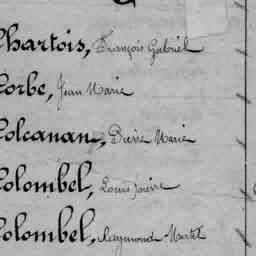 Chartois, François Gabriel
Corbe, Jean Marie
Colcanan, Pierre Marie
Colombel, Louis
Colombel, Raymond Martel